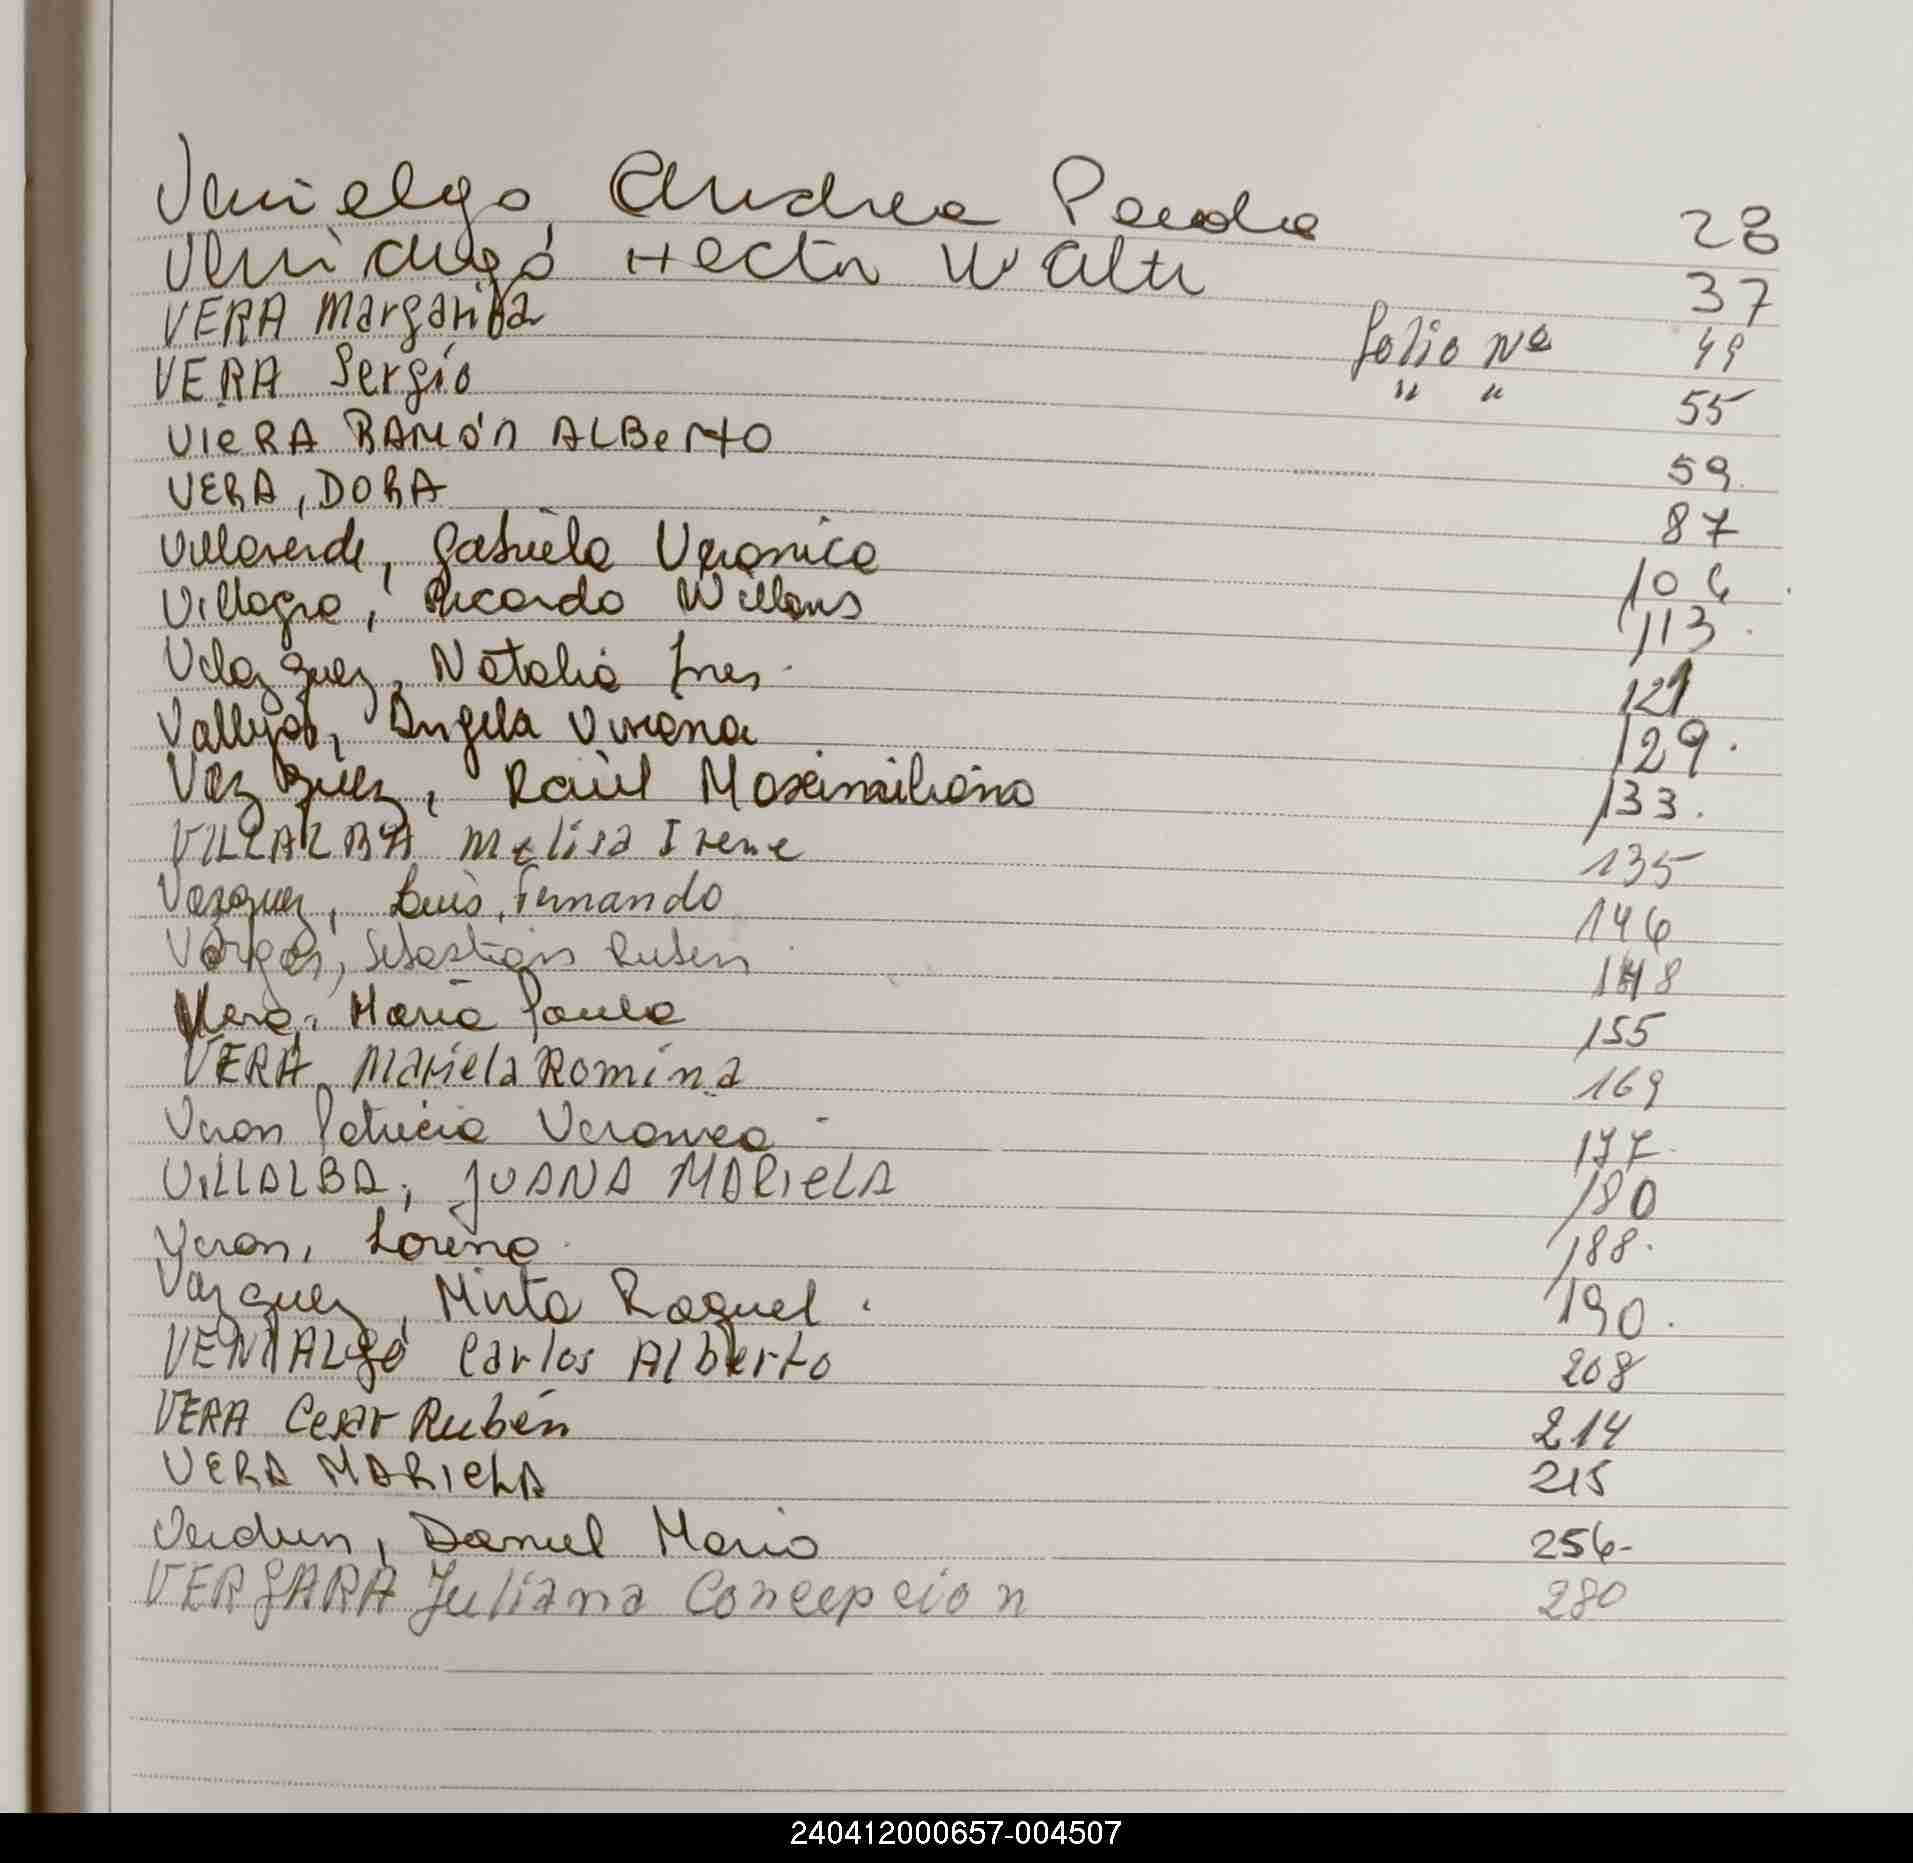 Venialgo Andrea Paola 28
Venialgó Hector Walter 37
VERA Margarita folio Nº 49
VERA Sergio " " 55
VIERA RAMÓN ALBERTO 59
VERA, DORA 87
Villaverde, Gabriela Veronica 106
Villagra, Ricardo Willans 113
Velazquez, Natalia Ines 121
Vallejos, Angela Viviana 129.
Vazquez, Raúl Maximiliano 133.
VILLALBA Melisa Irene 135
Vazquez, Luis Fernando 146
Vargas, Sebastian Ruben 148
Vera, Maria Paula 155
VERA Mariela Romina 169
Veron Patricia Veronica 177.
VILLALBA, JUANA MARIELA 180
Veron, Lorena 188.
Vazquez, Mirta Raquel. 190.
VENIALGÓ Carlos Alberto 208
VERA Cesar Rubén 214
VERA MARIELA 215
Verdun, Daniel Mario 256-
VERGARA Juliana Concepcion 280
240412000657-004507